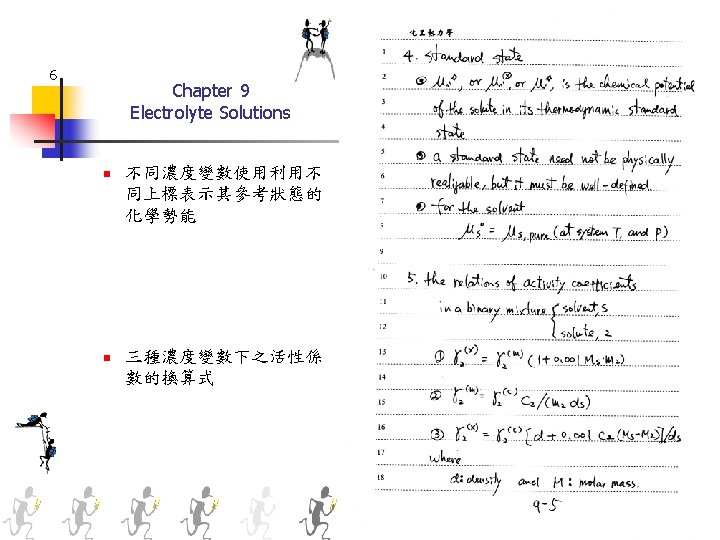 6
Chapter 9
Electrolyte Solutions
不同濃度變數使用利用不
同上標表示其參考狀態的
化學勢能
三種濃度變數下之活性係
數的換算式
化工熱力學
1 4. standard state
2 ① μᵢ^△, or μᵢ^□, or μᵢ^◇, is the chemical potential
3 of the solute in its thermodynamic standard
4 state
5 ② a standard state need not be physically
6 realizable, but it must be well-defined
7 ③ for the solvent
8 μs° = μs, pure (at system T, and P)
9
10 5. the relations of activity coefficients
11 in a binary mixture { solvent, s
12 solute, 2
13 ① γ₂^(x) = γ₂^(m) (1+0.001 Ms m₂)
14
15 ② γ₂^(m) = γ₂^(c) C₂/(m₂ ds)
16 ③ γ₂^(x) = γ₂^(c) [d+0.001 C₂(Ms-M₂)]/ds
17 where
18 d: density and M: molar mass.
9-5